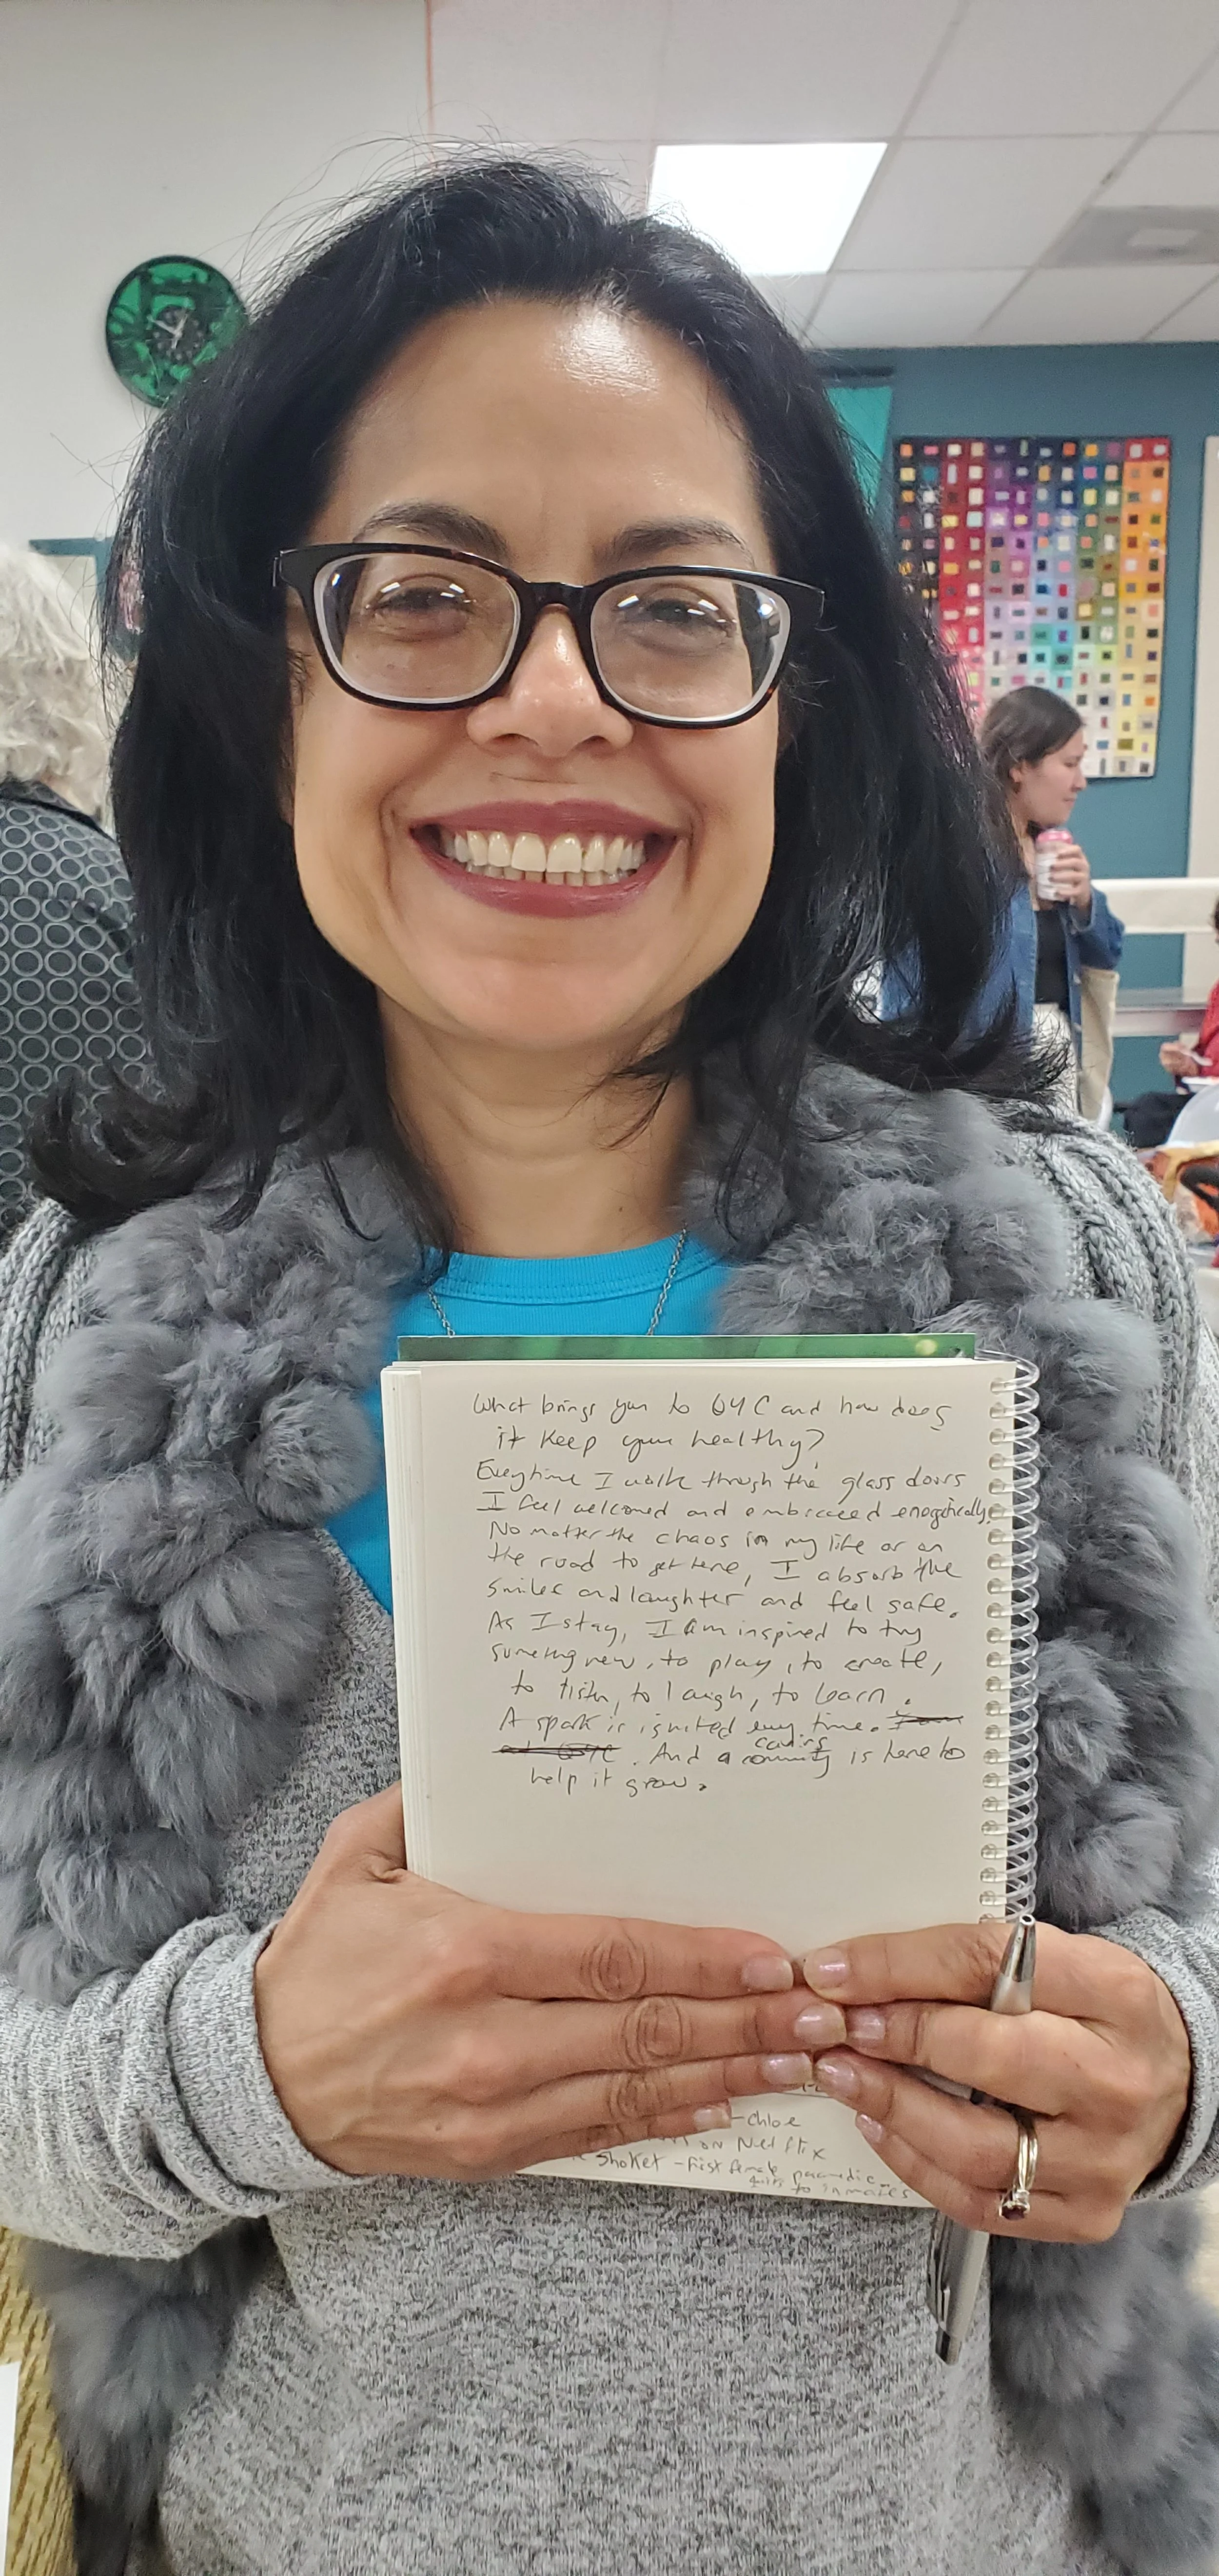 What brings you to GYC and how does
it keep you healthy?
Everytime I walk through the glass doors
I feel welcomed and embraced energetically.
No matter the chaos in my life or on
the road to get here, I absorb the
smiles and laughter and feel safe.
As I stay, I am inspired to try
something new, to play, to create,
to listen, to laugh, to learn.
A spark is ignited every time. I am
at GYC. And a caring community is here to
help it grow.
-chloe
on Netflix
Shoket - First female paramedic
to inmates